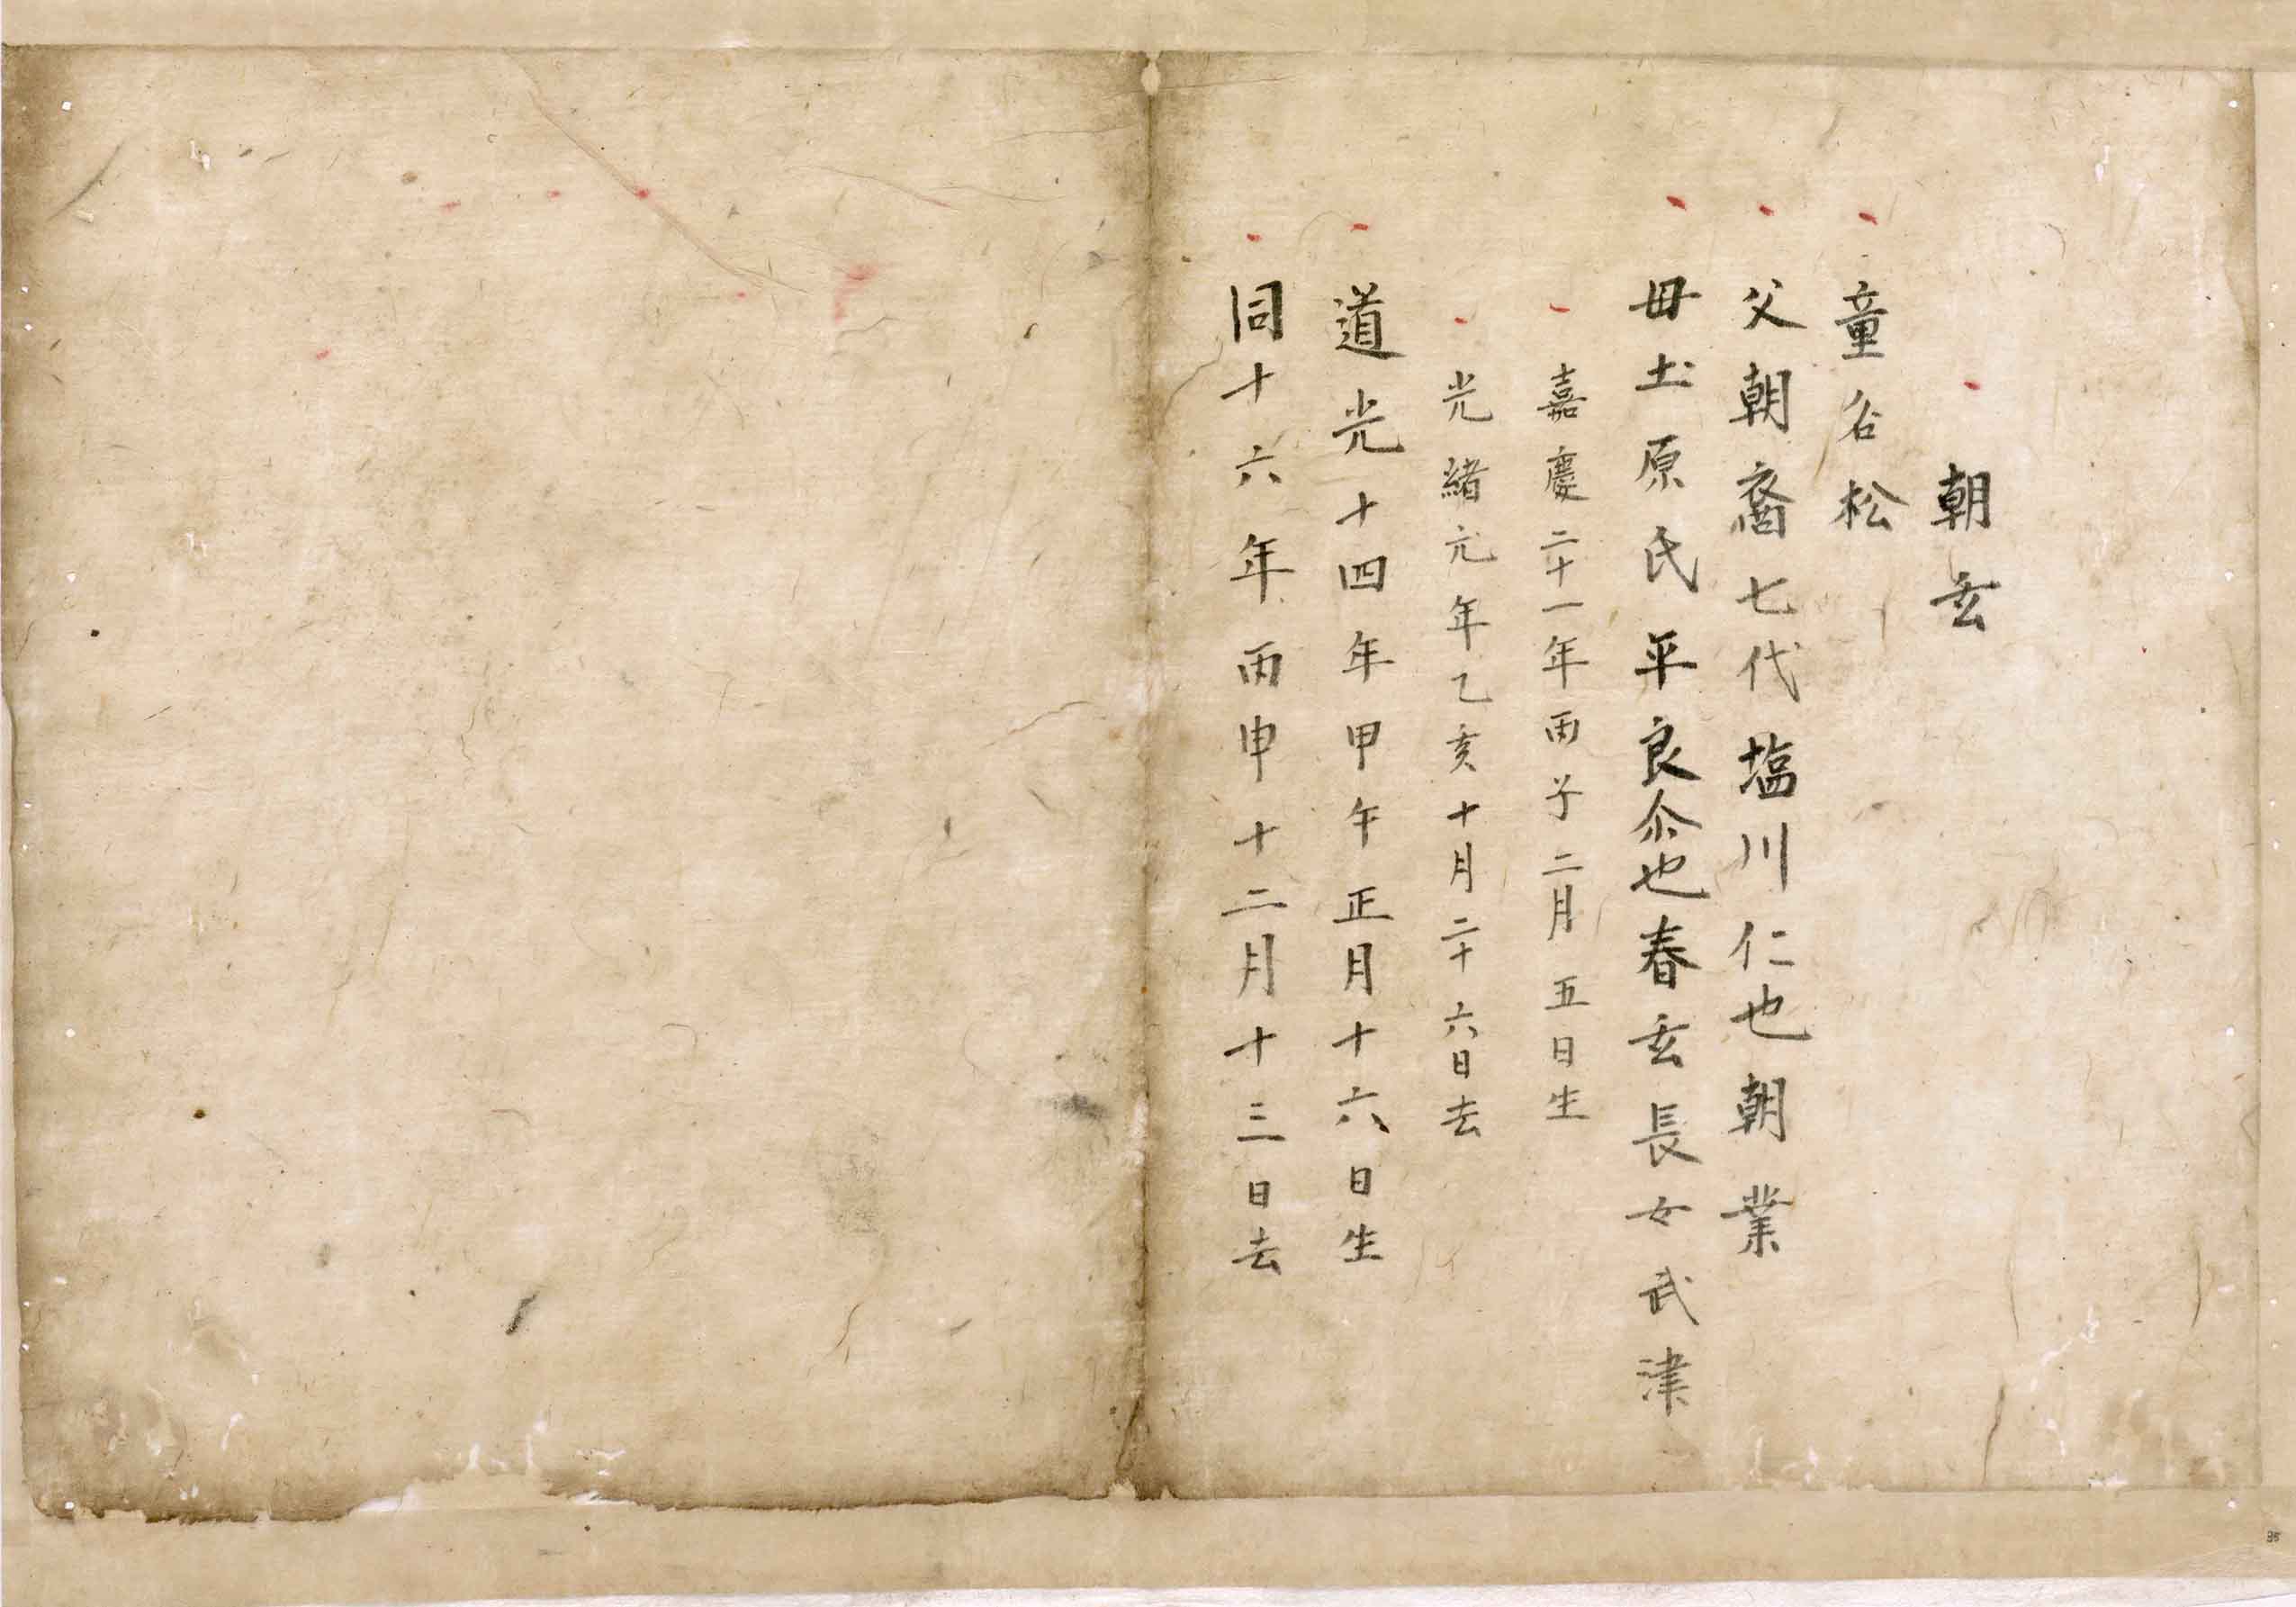 朝玄
童名松
父朝裔七代塩川仁也朝業
毋土原氏平良尒也春玄長女武津
嘉慶二十一年丙子二月五日生
光緒元年乙亥十月二十六日去
道光十四年甲午正月十六日生
同十六年丙申十二月十三日去